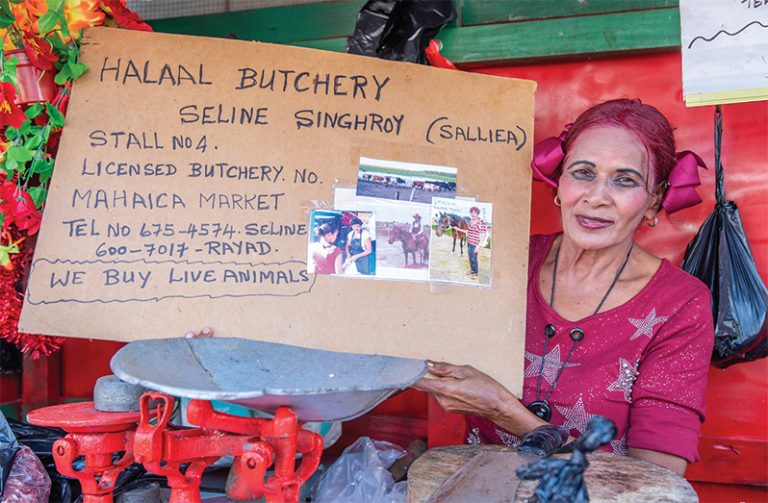 HALAAL BUTCHERY
SELINE SINGHROY (SALLIEA)
STALL NO 4.
LICENSED BUTCHERY. NO.
MAHAICA MARKET
TEL NO 675-4574. SELINE
600-7017-RAYAD.
WE BUY LIVE ANIMALS